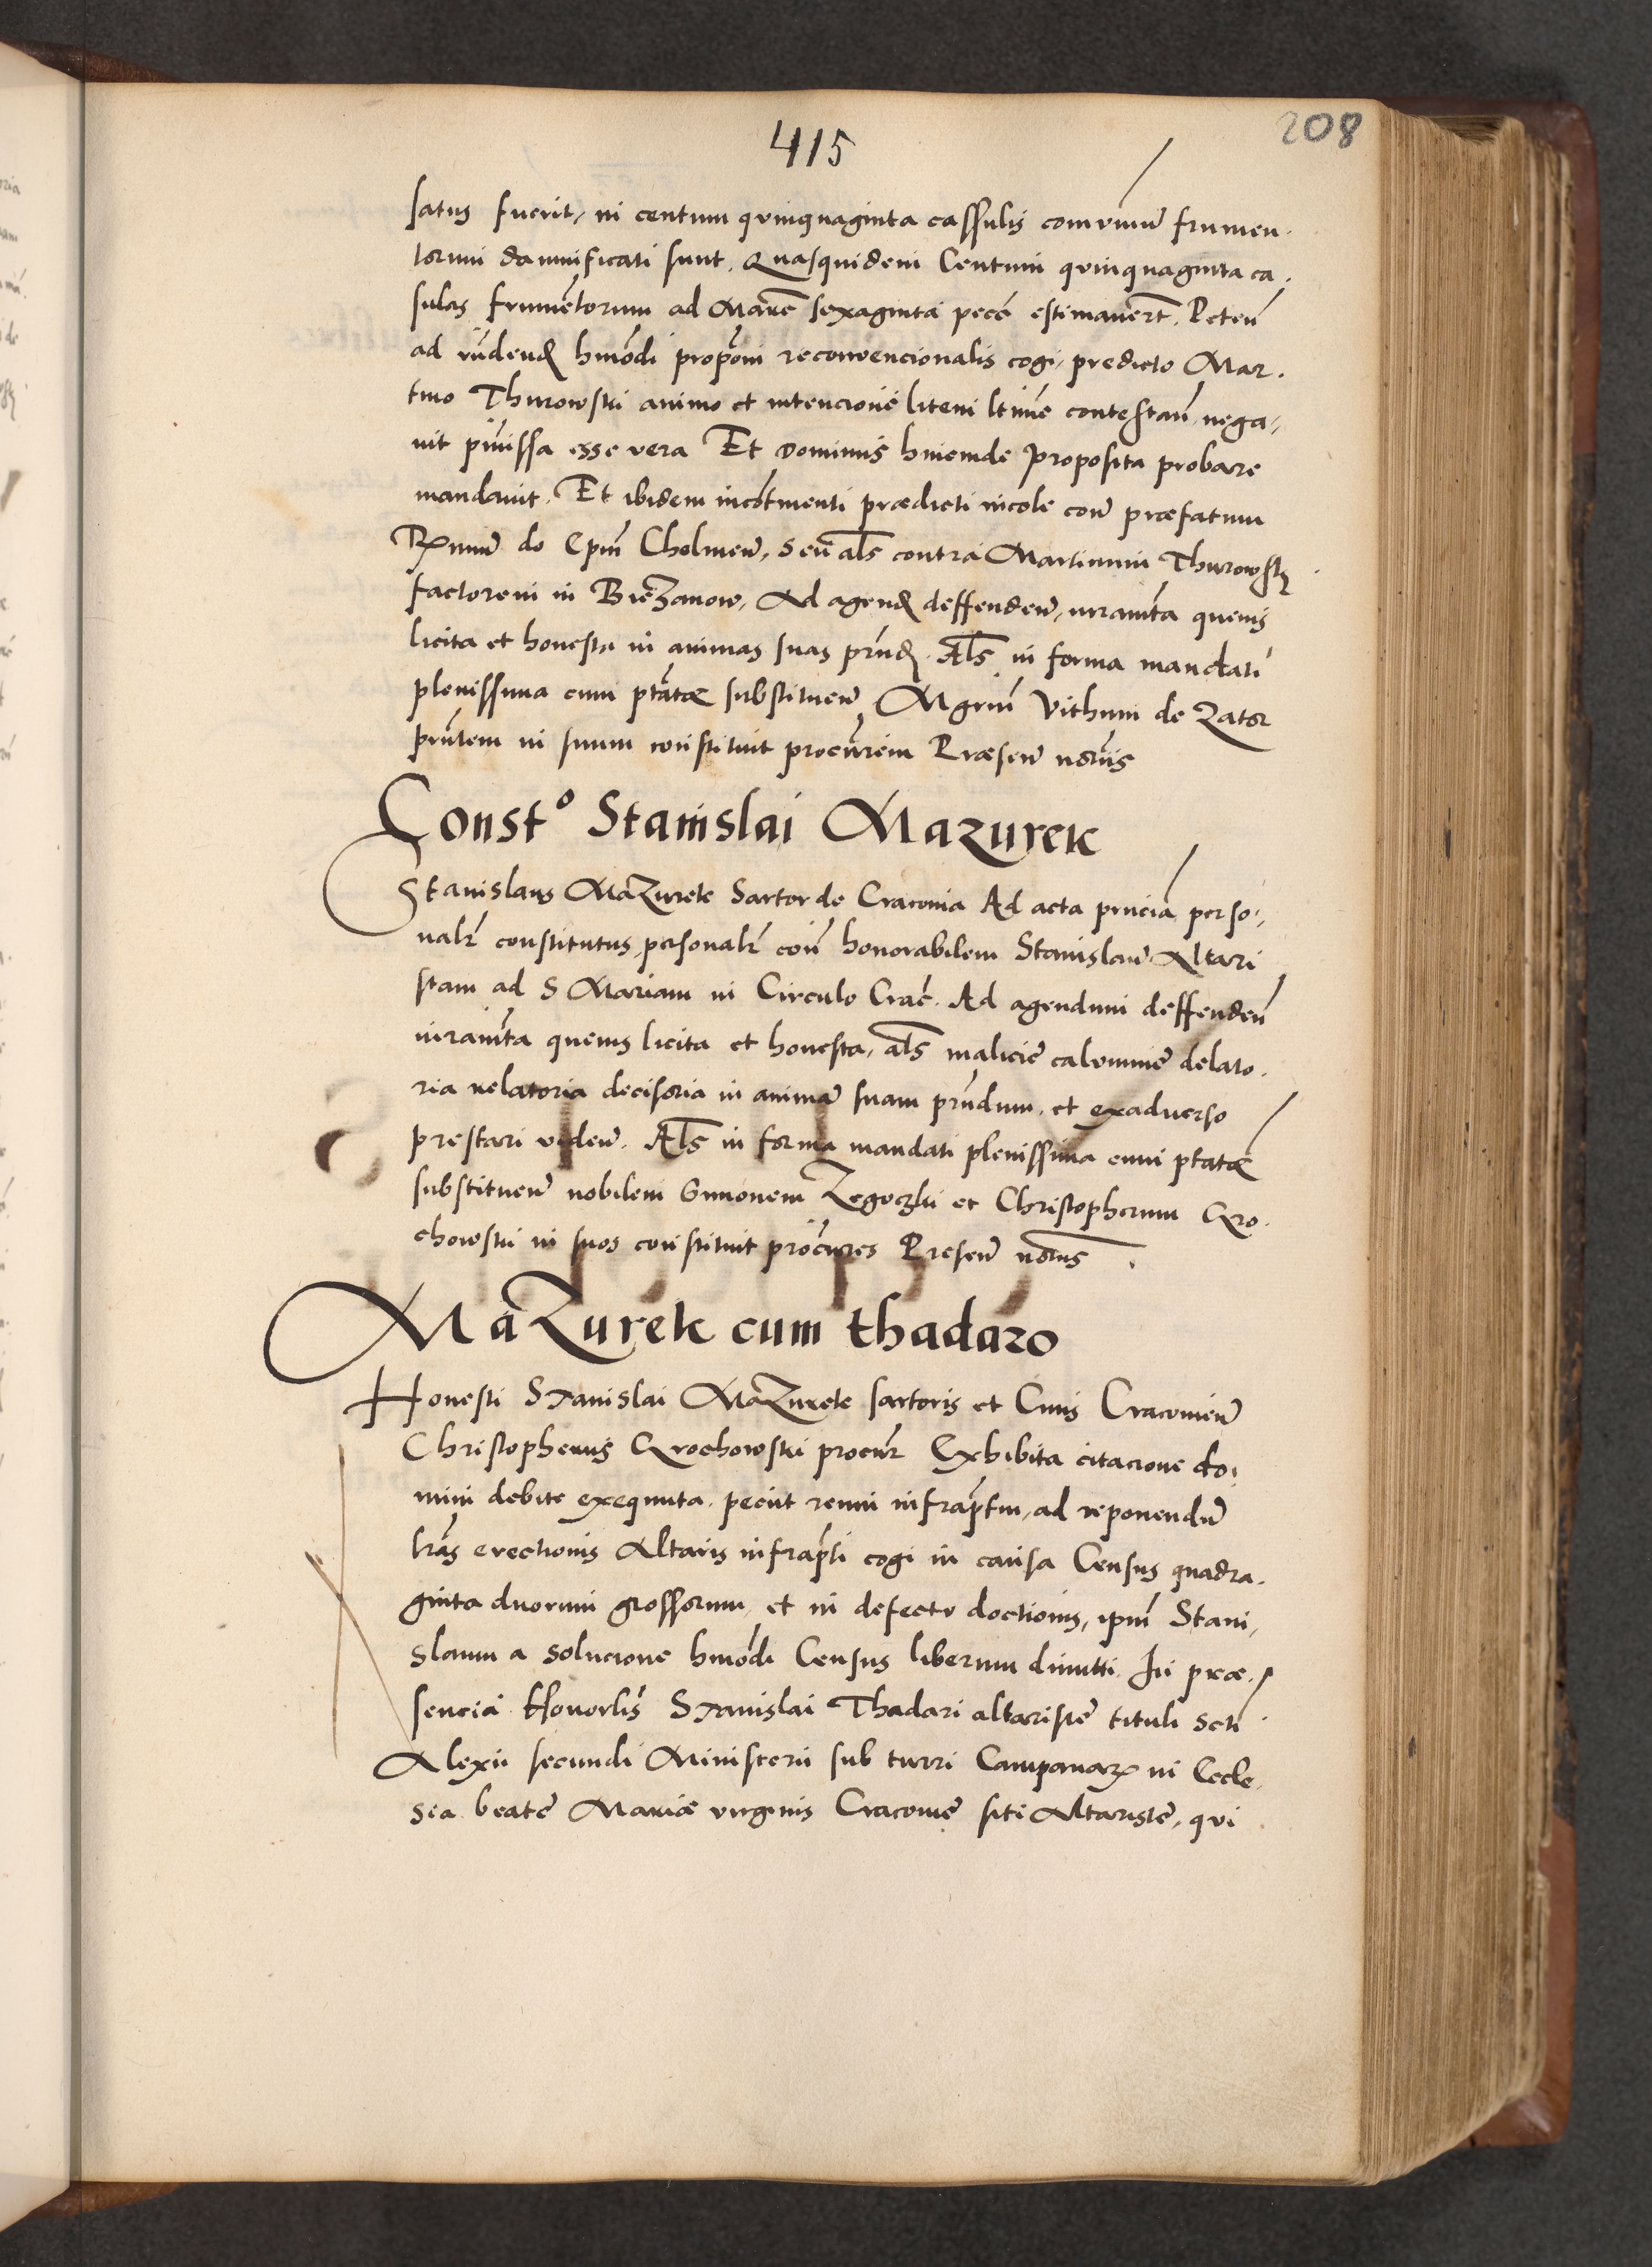 415
208
satus fuerit, in centum quinquaginta cassulis comuniu frumen
torum damnificati sunt. Quasquidem Centum quinquaginta ca
sulas frumetorum ad Marc sexaginta pecc estimavert. Peten
ad rndend hmodi proponi reconvencionalis cogi, predicto Mar
tino Thurowski animo et intencione litem ltime contestan nega
vit pmissa esse vera Et Dominus hincinde proposita probare
mandavit. Et ibidem incotinenti prædicti incole con præfatum
Rmum do Epm Cholmen, seu als contra Martinum Thurowsk
factorem in Biezanow, Ad agend deffenden, iuramta quevis
licita et honesta in animas suas prnd. Als in forma mandati
plenissima cum ptate substituen Mgrm Vithum de Zator
prntem in suum constituit procurem Præsen notariis
Const° Stanislai Mazurek
Stanislaus Mazurek Sartor de Cracovia Ad acta prncia perso
nalr constitutus, personalr con honorabilem Stanislau Altari
stam ad S Mariam in Circulo Crac. Ad agendum deffenden
iuramta quevis licita et honesta, als malicie calumnie delato
ria relatoria decisoria in anima suam prndum, et exadverso
prestari viden. Als in forma mandati plenissima cum ptate
substituen nobilem Simonem Zegoczki et Christopherum Gro
chowski in suos constituit procures Presen notriis
Mazurek cum thadaro
Honesti Stanislai Mazurek sartoris et Civis Cracovien
Christopherus Grochowski procur Exhibita citacione do
mini debite exequuta, peciit reum infraptm, ad reponendu
lras erectionis Altaris infrapti cogi in causa Census quadra
ginta duorum grossorum, et in defectu doctionis, ipm Stani
slaum a solucione hmodi Census liberum dimitti. In præ
sencia Honorlis Stanislai Thadari altariste tituli Scti
Alexii secundi Ministerii sub turri Campanar in Eccle
sia beate Mariæ virginis Cracovie siti Altariste, qui